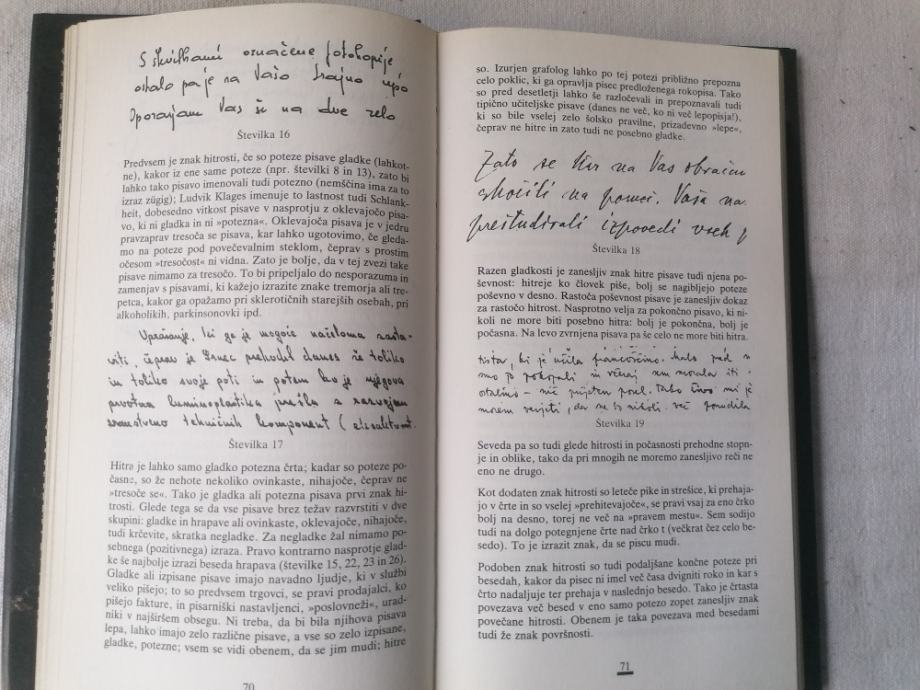 S številkami označene fotokopije
ostalo pa je na Vašo
Vas še na dve zelo
Številka 16
Predvsem je znak hitrosti, če so poteze pisave gladke (lahkot-
ne), kakor iz ene same poteze (npr. številki 8 in 13), zato bi
lahko tako pisavo imenovali tudi potezno (nemščina ima za to
izraz zügig); Ludvik Klages imenuje to lastnost tudi Schlank-
heit, dobesedno vitkost pisave v nasprotju z oklevajočo pisa-
vo, ki ni gladka in ni »potezna«. Oklevajoča pisava je v jedru
pravzaprav tresoča se pisava, kar lahko ugotovimo, če gleda-
mo na poteze pod povečevalnim steklom, čeprav s prostim
očesom »tresočost« ni vidna. Zato je bolje, da v tej zvezi take
pisave nimamo za tresočo. To bi pripeljalo do nesporazuma in
zamenjav s pisavami, ki kažejo izrazite znake tremorja ali tre-
petca, kakor ga opažamo pri sklerotičnih starejših osebah, pri
alkoholikih, parkinsonovki ipd.
Vprašanje, ki ga je mogoče načeloma zasta-
viti, čeprav je danes že toliko
in toliko svoje poti in potem ko je njegova
prvotna luminoplastika prešla z razvojem
znanstveno tehničnih komponent
Številka 17
Hitra je lahko samo gladko potezna črta; kadar so poteze po-
časne, so že nehote nekoliko ovinkaste, nihajoče, čeprav ne
»tresoče se«. Tako je gladka ali potezna pisava prvi znak hi-
trosti. Glede tega se da vse pisave brez težav razvrstiti v dve
skupini: gladke in hrapave ali ovinkaste, oklevajoče, nihajoče,
tudi krčevite, skratka negladke. Za negladke žal nimamo po-
sebnega (pozitivnega) izraza. Pravo kontrarno nasprotje glad-
ke še najbolje izrazi beseda hrapava (številke 15, 22, 23 in 26).
Gladke ali izpisane pisave imajo navadno ljudje, ki v službi
veliko pišejo; to so predvsem trgovci, se pravi prodajalci, ko
pišejo fakture, in pisarniški nastavljenci, »poslovneži«, urad-
niki v najširšem obsegu. Ni treba, da bi bila njihova pisava
lepa, lahko imajo zelo različne pisave, a vse so zelo izpisane,
gladke, potezne; vsem se vidi obenem, da se jim mudi; hitre
70
so. Izurjen grafolog lahko po tej potezi približno prepozna
celo poklic, ki ga opravlja pisec predloženega rokopisa. Tako
so pred desetletji lahko še razločevali in prepoznavali tudi
tipično učiteljske pisave (danes ne več, ko ni več lepopisja!),
ki so bile vselej zelo šolsko pravilne, prizadevno »lepe«,
čeprav ne hitre in zato tudi ne posebno gladke.
Zato se na Vas obračam
skočili na pomoč. Vaša na
preštudirali izpovedi vseh
Številka 18
Razen gladkosti je zanesljiv znak hitre pisave tudi njena po-
ševnost: hitreje ko človek piše, bolj se nagibljejo poteze
poševno v desno. Rastoča poševnost pisave je zanesljiv dokaz
za rastočo hitrost. Nasprotno velja za pokončno pisavo, ki ni-
koli ne more biti posebno hitra: bolj je pokončna, bolj je
počasna. Na levo zvrnjena pisava pa še celo ne more biti hitra.
ki je učila francoščino.
smo jo pokopali in včeraj sem morala iti
ostalimi – nič prijeten posel. Tako živo mi je
morem verjeti, da ne bo nikoli več govorila
Številka 19
Seveda pa so tudi glede hitrosti in počasnosti prehodne stopn-
je in oblike, tako da pri mnogih ne moremo zanesljivo reči ne
eno ne drugo.
Kot dodaten znak hitrosti so leteče pike in strešice, ki prehaja-
jo v črte in so vselej »prehitevajoče«, se pravi vsaj za eno črko
bolj na desno, torej ne več na »pravem mestu«. Sem sodijo
tudi na dolgo potegnjene črte nad črko t (večkrat čez celo be-
sedo). To je izrazit znak, da se piscu mudi.
Podoben znak hitrosti so tudi podaljšane končne poteze pri
besedah, kakor da pisec ni imel več časa dvigniti roko in kar s
črto nadaljuje ter prehaja v naslednjo besedo. Tako je črtasta
povezava več besed v eno samo potezo zopet zanesljiv znak
povečane hitrosti. Obenem je taka povezava med besedami
tudi že znak površnosti.
71